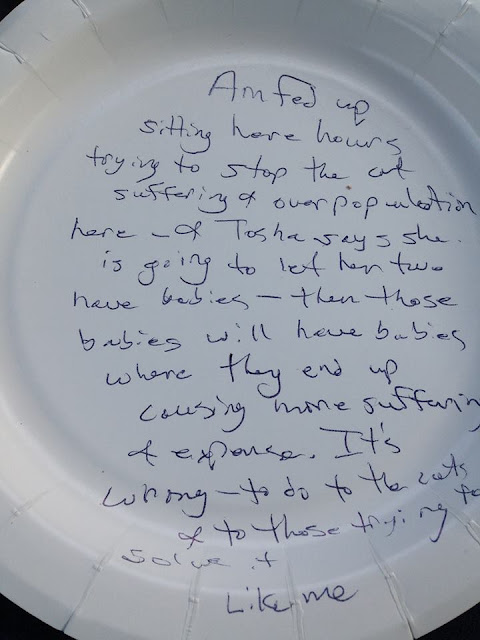 Am fed up
sitting here hours
trying to stop the cat
suffering & overpopulation
here - & Tosha says she
is going to let her two
have babies - then those
babies will have babies
where they end up
causing more suffering
& expense. It's
wrong - to do to the cats
& to those trying to
solve it
Like me